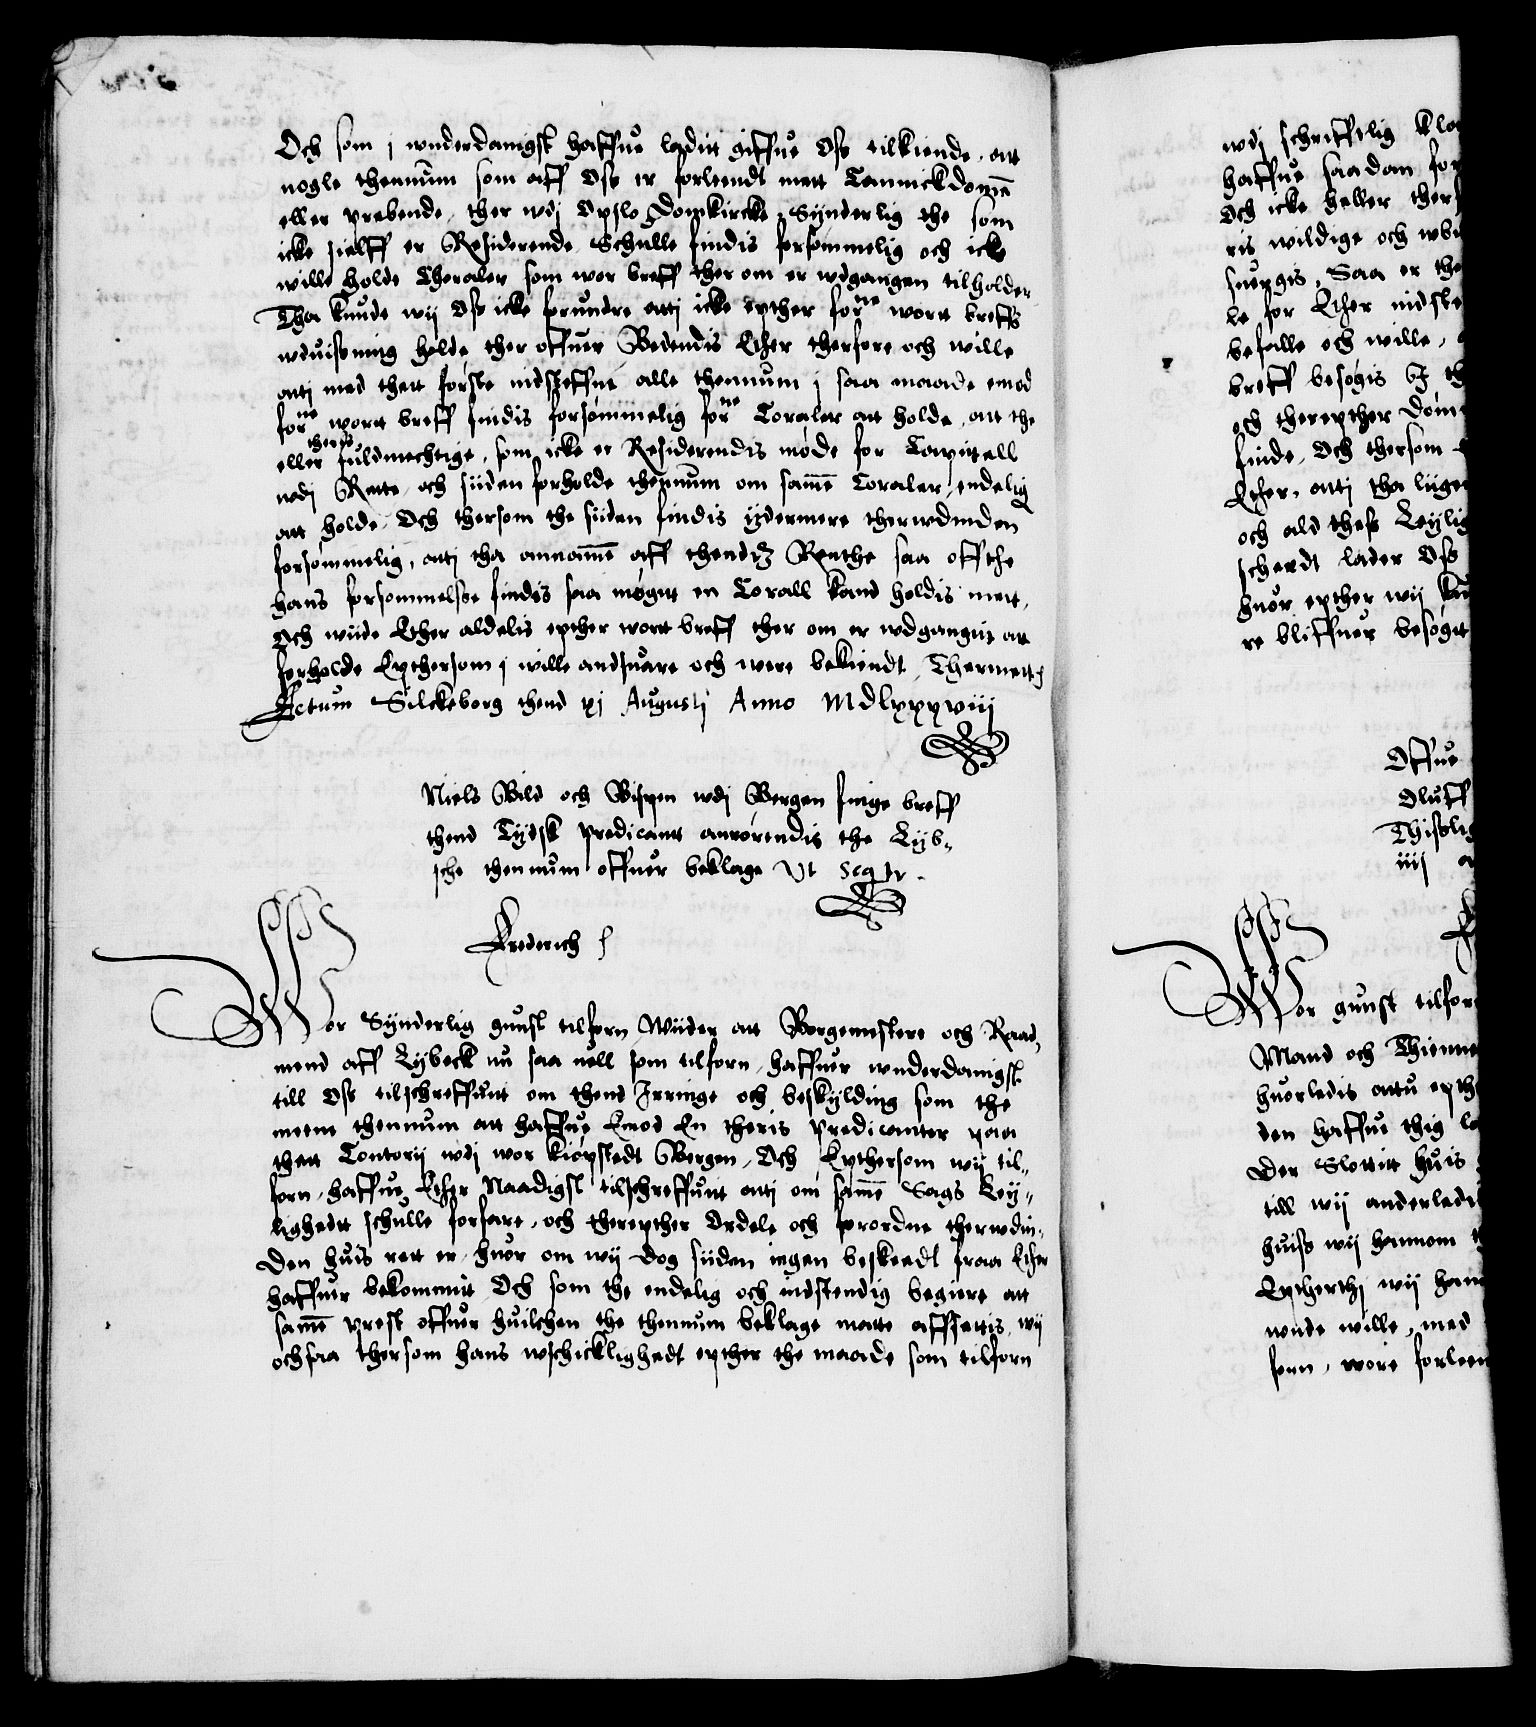 Och som j wnderdanigst haffue ladit giffue Oss tilkiende, att
nogle thennum som aff Oss er forleendt mett Cannickdomē
eller prebende, ther wdj Opslo Domkircke, Synderlig the som
icke sielff er Residerende Schulle findis forsømmelig och icke
wille holde Choraler som wor breff ther om er wdgangen tilholder
Tha kunde wij Oss icke forundre atj icke epther forne wortt breffs
wduisning holde ther offuer Bedendis Ether therfore och wille
atj med thett første indsteffne alle thennum j saa maade emod
forne wortt breff findis forsømmelig forne Coraler att holde, att the
eller theris fuldmechtige, som icke er Residerendis møde for Capittell
wdj Rette, och siiden forholde thennum om samē Coraler, endelig
att holde. Och thersom the siiden findis ydermere therwdinden
forsømmelig, atj tha annamē aff thendtz Renthe saa offthe
hans forsømmelse findis saa møgitt en Corall kand holdis mett,
Och wiide Ether aldelis epther wortt breff ther om er wdgangit att
forholde Epthersom j wille andsuare och were bekiendt, Thermett
Actum Silckeborg thend xj Augustj Anno MDlxxxviij
Niels Bild och Bispen wdj Bergen finge breff
thend Tydsk predicant anrørendis the Lyb-
sche thennum offuer beklage Vt Seqtr.
Frederich
Wor Synderlig gunst tilforn, Wiider att Borgemestere och Raad
mend aff Lybeck nu saa uell som tilforn, haffuer wnderdanigst
till Oss tilschreffuit om thend Irringe och beskylding som the
meene thennum att haffue Emod En theris predicanter paa
thett Contorij wdj wor kiøpstedt Bergen, Och Epthersom wij til-
forn, haffue Ether Naadigst tilschreffuit atj om samē Sags Ley-
lighedt schulle forfare, och therepther Ordele och forordne therwdin-
den huis rett er, huor om wij dog siiden ingen beskeedt fraa Ether
haffuer bekommit Och som the endelig och indstendig begiere att
samē prest offuer huilcken the thennum beklage matte affsettis, wij
ochsaa thersom hans wschicklighedt epther the maade som tilforn
wdj schrifftlig
haffue saadan
Och icke heller
ris wildige och
suergis, Saa er
le for Ether
befalle och wille,
breff besøgis
och therepther
finde, Och thersom
Ether, atj tha
och ald thess
scheedt lader Oss
huor epther wij
re bliffuer besøgit
Offue
Oluff
iiij
Wor gunst
Mand och
huorledis attu
den haffue thig
der Slottitt huis
till wij
huis wij hannom
Eptherthj wij
wnde wille, med
wore